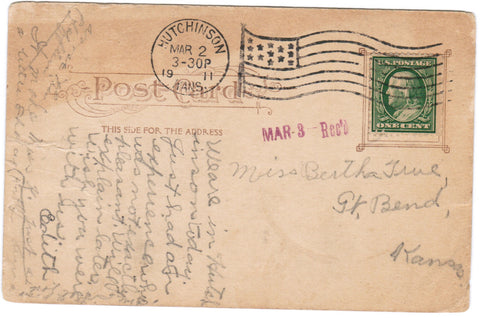 HUTCHINSON
MAR 2
3-30P
19 11
KANS.
U.S. POSTAGE
ONE CENT
Post Card
THIS SIDE FOR THE ADDRESS
MAR-3- Rec'd
Miss Bertha True,
Gt. Bend,
Kansas.
We are in Hutch
inson today.
Just had an
experience
was not decidedly
pleasant. Will
explain later.
Wish you were
with us.
Edith